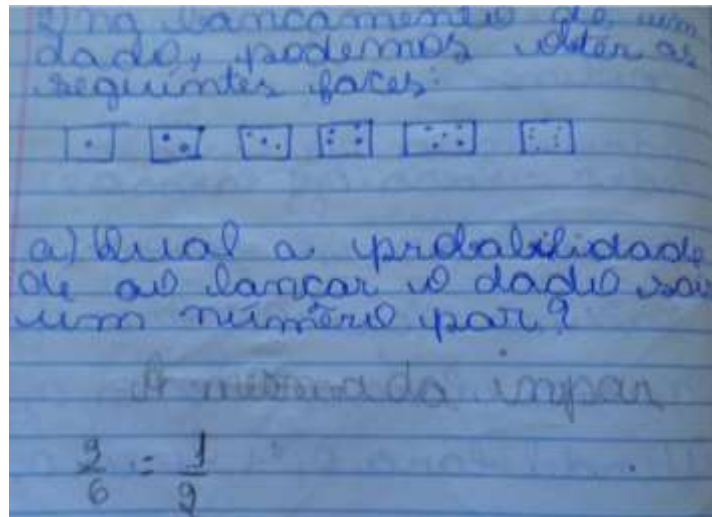 no lançamento de um
dado, podemos obter as
seguintes faces:
a) Qual a probabilidade
de ao lançar o dado sair
um número par?
A mesma do inpar
3/6 = 1/2